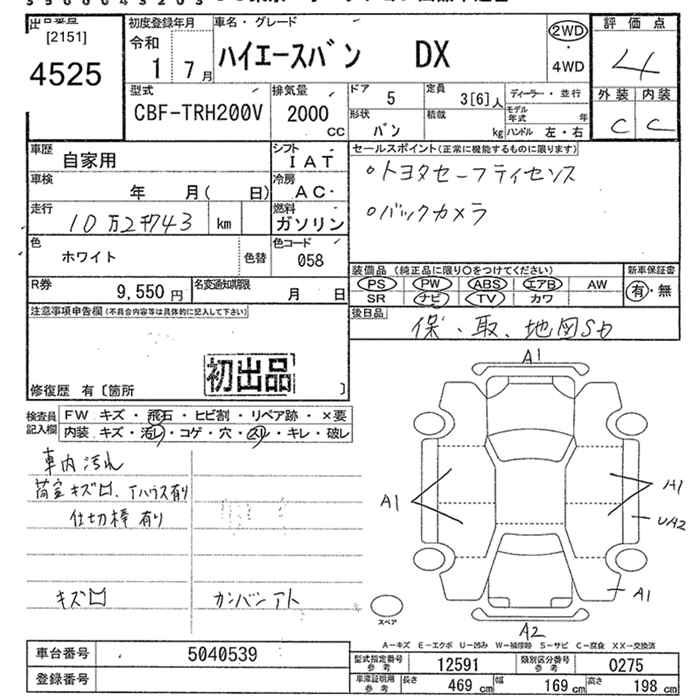 [2151]
4525
初度登録年月
令和
1 7月
車名・グレード
ハイエースバン DX
2WD
4WD
評価点
4
外装 内装
C C
型式
CBF-TRH200V
排気量
2000
CC
ドア 5
定員 3[6]人
形状 バン
積載 kg
ディーラー・並行
モデル年式 年
ハンドル 左・右
車歴 自家用
シフト IAT
車検 年 月( 日)
冷房 AC
走行 10万2千743 km
燃料 ガソリン
色 ホワイト
色替
色コード 058
R券 9,550円
名変通知期限 月 日
セールスポイント(正常に機能するものに限ります)
・トヨタセーフティセンス
・バックカメラ
装備品 (純正品に限り○をつけてください)
PS PW ABS エアB AW
SR ナビ TV カワ
新車保証書
有・無
後日品
保・取、地図SD
注意事項申告欄(不具合内容等は具体的に記入して下さい)
初出品
修復歴 有〔箇所 〕
検査員記入欄
FW キズ・飛石・ヒビ割・リペア跡・×要
内装 キズ・汚レ・コゲ・穴・スレ・キレ・破レ
車内汚れ
荷室キズ凹、Tハウス有り
仕切棒有り
キズ凹
カンバンアト
A1
A1
A1
UA2
A1
A2
スペア
A-キズ E-エクボ U-凹み W-補修跡 S-サビ C-腐食 XX-交換済
車台番号 5040539
登録番号
型式指定番号 参考 12591
類別区分番号 参考 0275
車庫証明用 参考 長さ 469 cm 幅 169 cm 高さ 198 cm